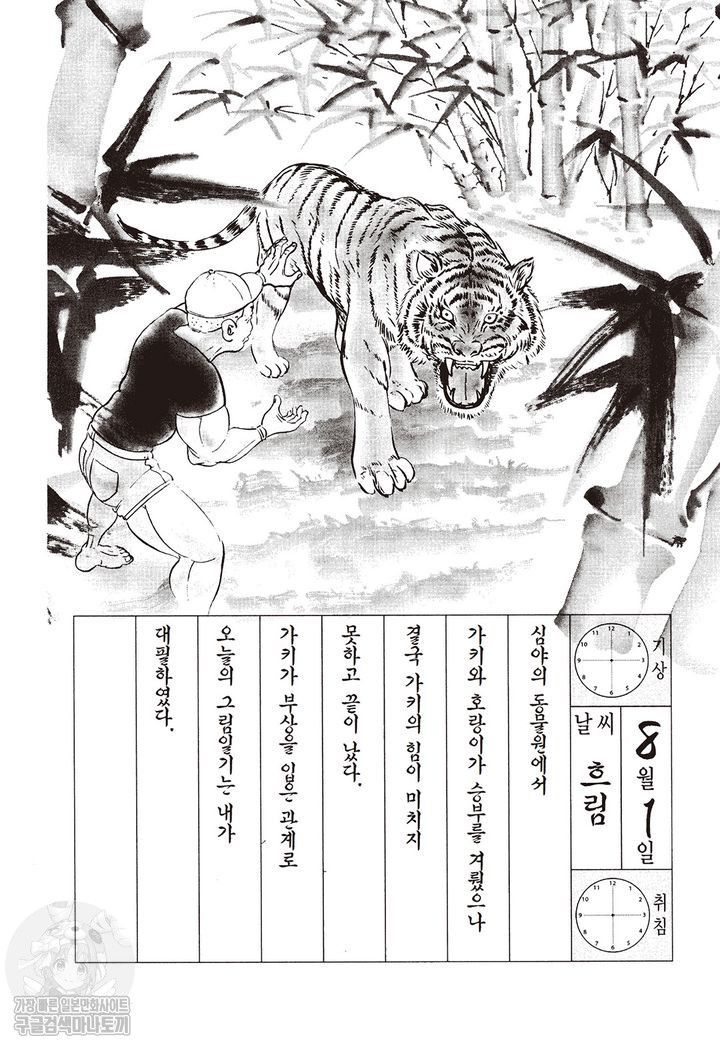 기상
8월 1일
날씨 흐림
취침
심야의 동물원에서
가키와 호랑이가 승부를 겨뤘으나
결국 가키의 힘이 미치지
못하고 끝이 났다.
가키가 부상을 입은 관계로
오늘의 그림일기는 내가
대필하였다.
가장 빠른 일본만화사이트
구글검색마나토끼